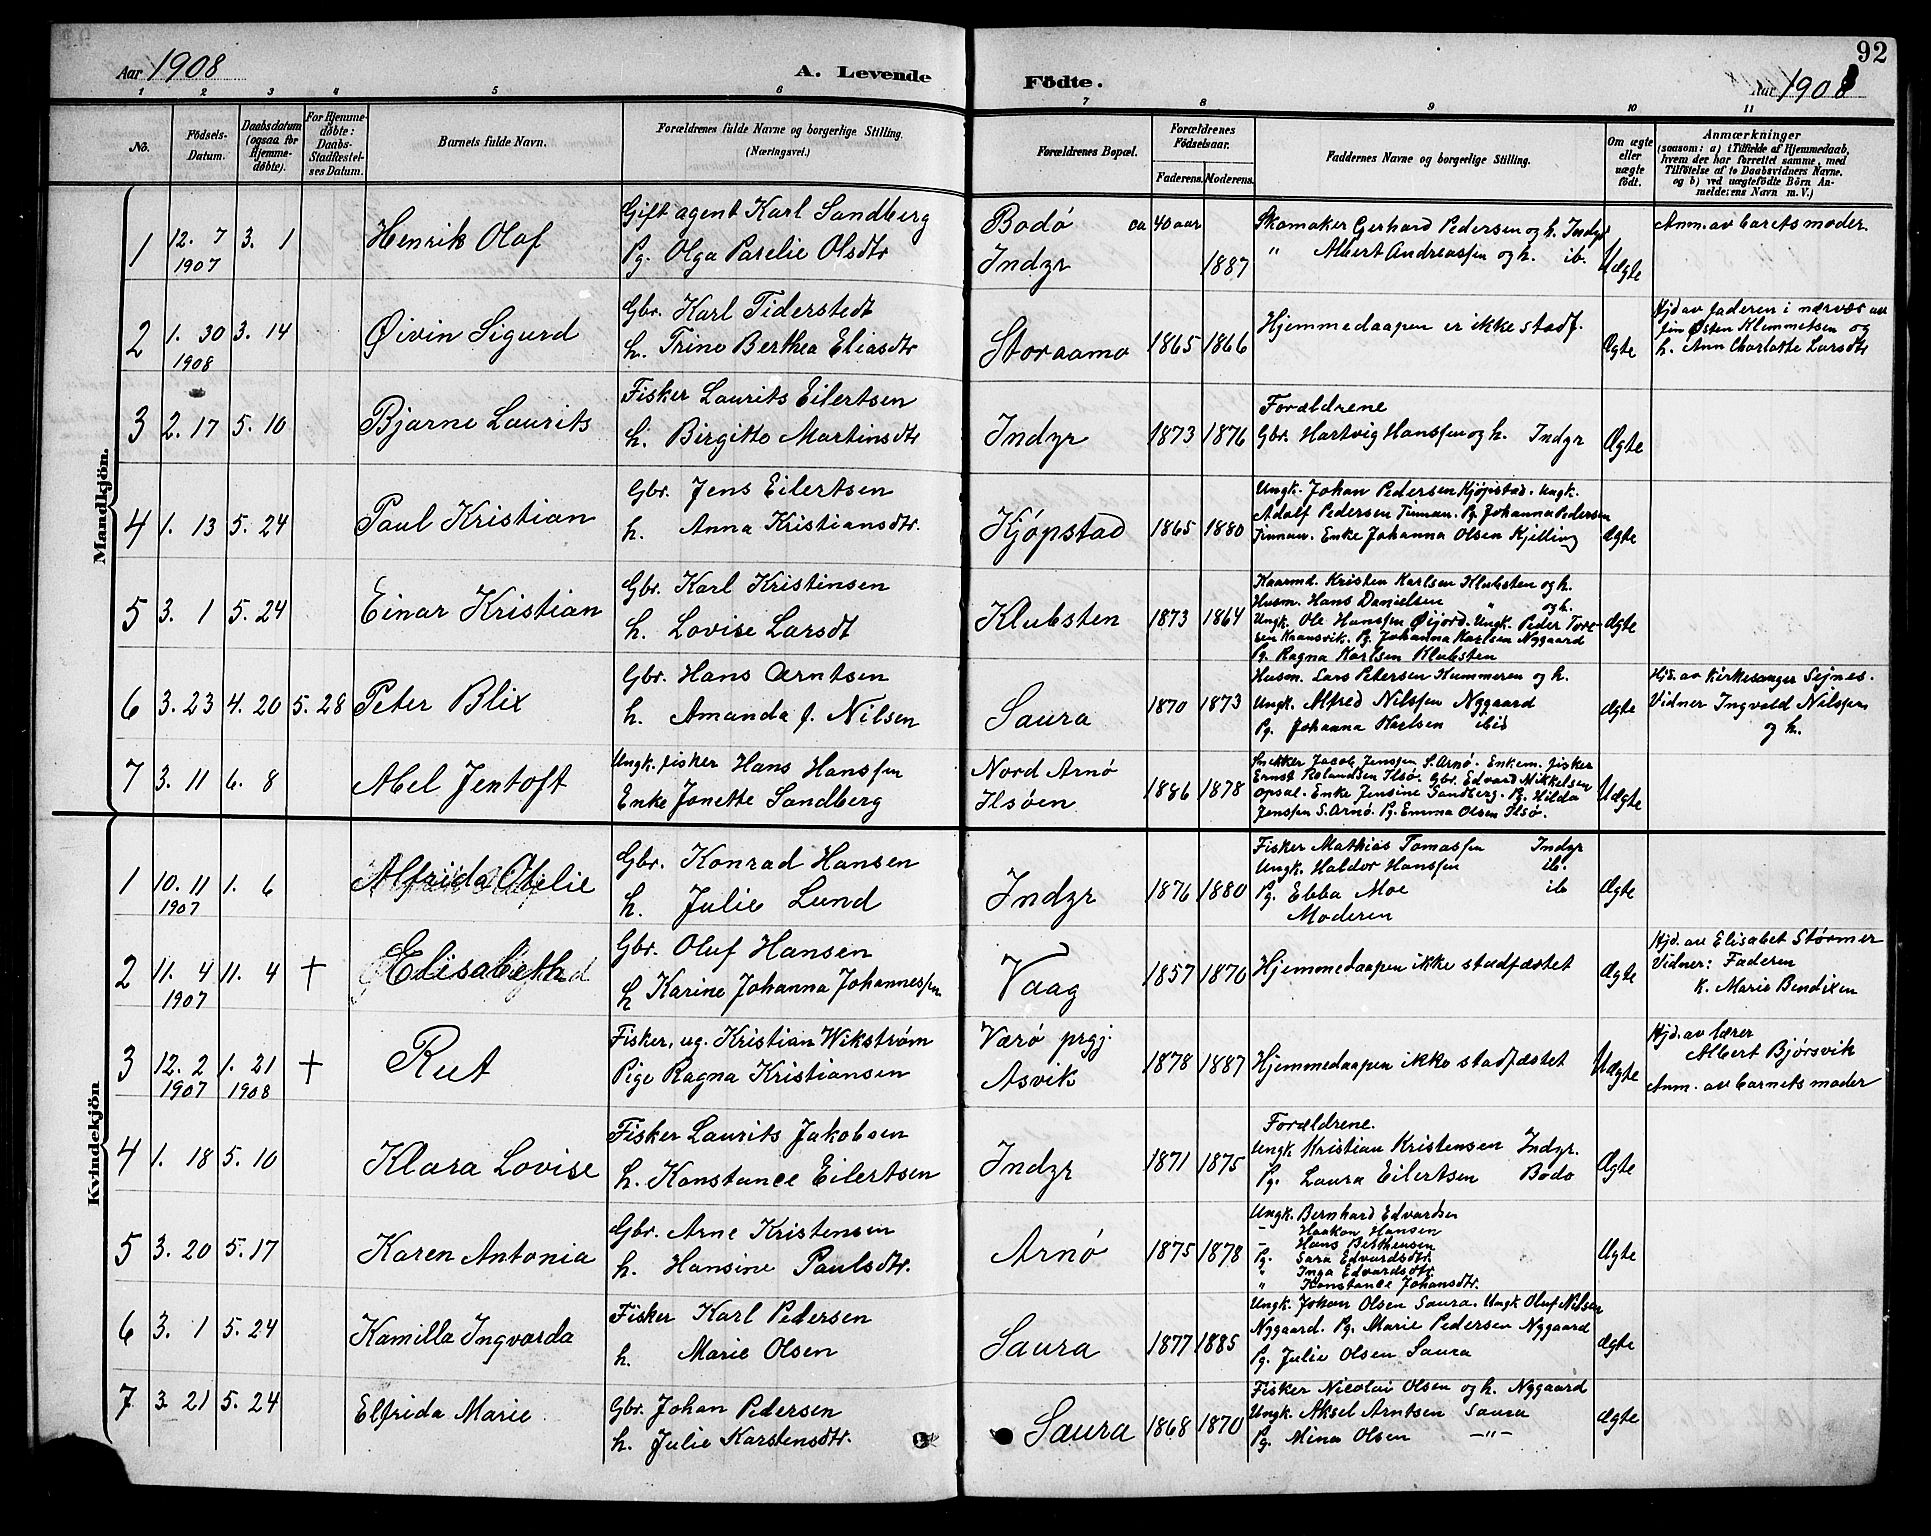 92
Aar 1908
A. Levende
Födte.
Aar 1908
1 2 3 4 5 6 7 8 9 10 11
No.
Födsels-Datum.
Daabsdatum (ogsaa for Hjemmedøbte).
For Hjemmedøbte: Daabs-Stadfestelses Datum.
Barnets fulde Navn.
Forældrenes fulde Navne og borgerlige Stilling. (Næringsvei.)
Forældrenes Bopæl.
Forældrenes Fødselsaar.
Faderens. Moderens.
Faddernes Navne og borgerlige Stilling.
Om ægte eller uægte født.
Anmærkninger
(saasom: a) i Tilfælde af Hjemmedaab, hvem der har forrettet samme, med Tilføielse af to Daabsvidners Navne. og b) ved uægtefødte Börn Anmelderens Navn m. V.)
Mandkjön.
1 12. 7 1907 3. 1 Henrik Olaf
Gift agent Karl Sandberg Bodø ca 40 aar Skomaker Gerhard Pedersen og h. Indyr Anm. av barets moder.
Pg. Olga Parelie Olsdtr Indyr 1887 " Albert Andreassen og h. ib. Uægte
2 1. 30 1908 3. 14 Øivin Sigurd
Gbr. Karl Tiderstedt
h. Trine Berthea Eliasdtr Storaamo 1865 1866 Hjemmedaapen er ikke stadf. Ægte
Hjd av faderen i nærvær av
Østen Klemmetsen og
h. Ann Charlotte Larsdtr
3 2. 17 5. 10 Bjarne Laurits
Fisker Laurits Eilertsen
h. Birgitte Martinsdtr Indyr 1873 1876
Forældrene
Gbr. Hartvig Hanssen og h. Indyr Ægte
4 1. 13 5. 24 Paul Kristian
Gbr. Jens Eilertsen
h. Anna Kristiansdtr. Kjøpstad 1865 1880
Ungk. Johan Pedersen Kjøpstad. Ungk.
Adolf Pedersen Finnan. Pg. Johanna Pedersen
Finnan. Enke Johanna Olsen Kjelling Ægte
5 3. 1 5. 24 Einar Kristian
Gbr. Karl Kristinsen
h. Lovise Larsdt Klubsten 1873 1864
Kaarmd. Kristen Karlsen Klubsten og h.
Husm. Hans Danielsen " og h.
Ungk. Ole Hanssen Øijord. Ungk. Peder Tore-
sen Kaansvik. Pg. Johanna Karlsen Nygaard
Pg. Ragna Karlsen Klubsten
Ægte
6 3. 23 4. 20 5. 28 Peter Blix
Gbr. Hans Arntsen
h. Amanda J. Nilsen Saura 1870 1873
Husm. Lars Petersen Kummeren og h.
Ungk. Alfred Nilssen Nygaard
Pg. Johanna Karlsen ibid
Ægte
Hjd. av Kirkesanger Sejnes.
Vidner Ingvald Nilssen
og h.
7 3. 11 6. 8 Abel Jentoft
Ungk. fisker Hans Hanssen Nord Arnø
Enke Jonette Sandberg Ilsøen 1886 1878
Snekker Jacob Jenssen S. Arnø. Enkem. fisker
Ernst Rolandsen Ilsø. Gbr. Edvard Mikkelsen
Opsal. Enke Jensine Sandberg. Pg. Hilda
Jenssen S. Arnø. Pg. Emma Olsen Ilsø.
Uægte
Kvindekjön
1 10. 11 1907 1. 6 Alfrida Otelie
Gbr. Konrad Hansen
h. Julie Lund Indyr 1876 1880
Fisker Mathias Tomassen Indyr
Ungk. Haldor Hanssen ib.
Pg. Ebba Moe ib
Moderen
Ægte
2 11. 4 1907 11. 4 + Elisabeth
Gbr. Oluf Hansen
h Karine Johanna Johannessen Vaag 1857 1870 Hjemmedaapen ikke stadfæstet Ægte
Hjd. av Elisabet Størmer
Vidner: Faderen
k. Marie Bendixen
3 12. 2 1907 1. 21 1908 + Rut
Fisker, ug. Kristian Wikstrøm Værø prgj.
Pige Ragna Kristiansen Asvik 1878 1887 Hjemmedaapen ikke stadfæstet Uægte
Hjd. av lærer
Albert Bjørsvik
Anm. av barnets moder
4 1. 18 5. 10 Klara Lovise
Fisker Laurits Jakobsen
h. Konstance Eilertsen Indyr 1871 1875
Forældrene.
Ungk Kristian Kristensen Indyr.
Pg. Laura Eilertsen Bodø
Ægte
5 3. 20 5. 17 Karen Antonia
Gbr. Arne Kristensen
h. Hansine Paulsdtr. Arnø 1875 1878
Ungk. Bernhard Edvardsen
– Haakon Hansen
– Hans Berthensen
Pg. Sara Edvardsdtr.
" Inga Edvardsdtr.
" Konstance Johansdtr.
Ægte
6 3. 1 5. 24 Kamilla Ingvarda
Fisker Karl Pedersen
h. Marie Olsen Saura 1877 1885
Ungk. Johan Olsen Saura. Ungk Oluf Nilsen
Nygaard. Pg. Marie Pedersen Nygaard
Pg. Julie Olsen Saura
Ægte
7 3. 21 5. 24 Elfrida Marie
Gbr. Johan Pedersen
h. Julie Karstensdtr. Saura 1868 1870
Fisker Nicolai Olsen og h. Nygaard
Ungk. Aksel Arntsen Saura
Pg. Mina Olsen –"–
Ægte